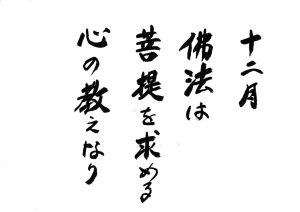 十二月
佛法は
菩提を求める
心の教えなり